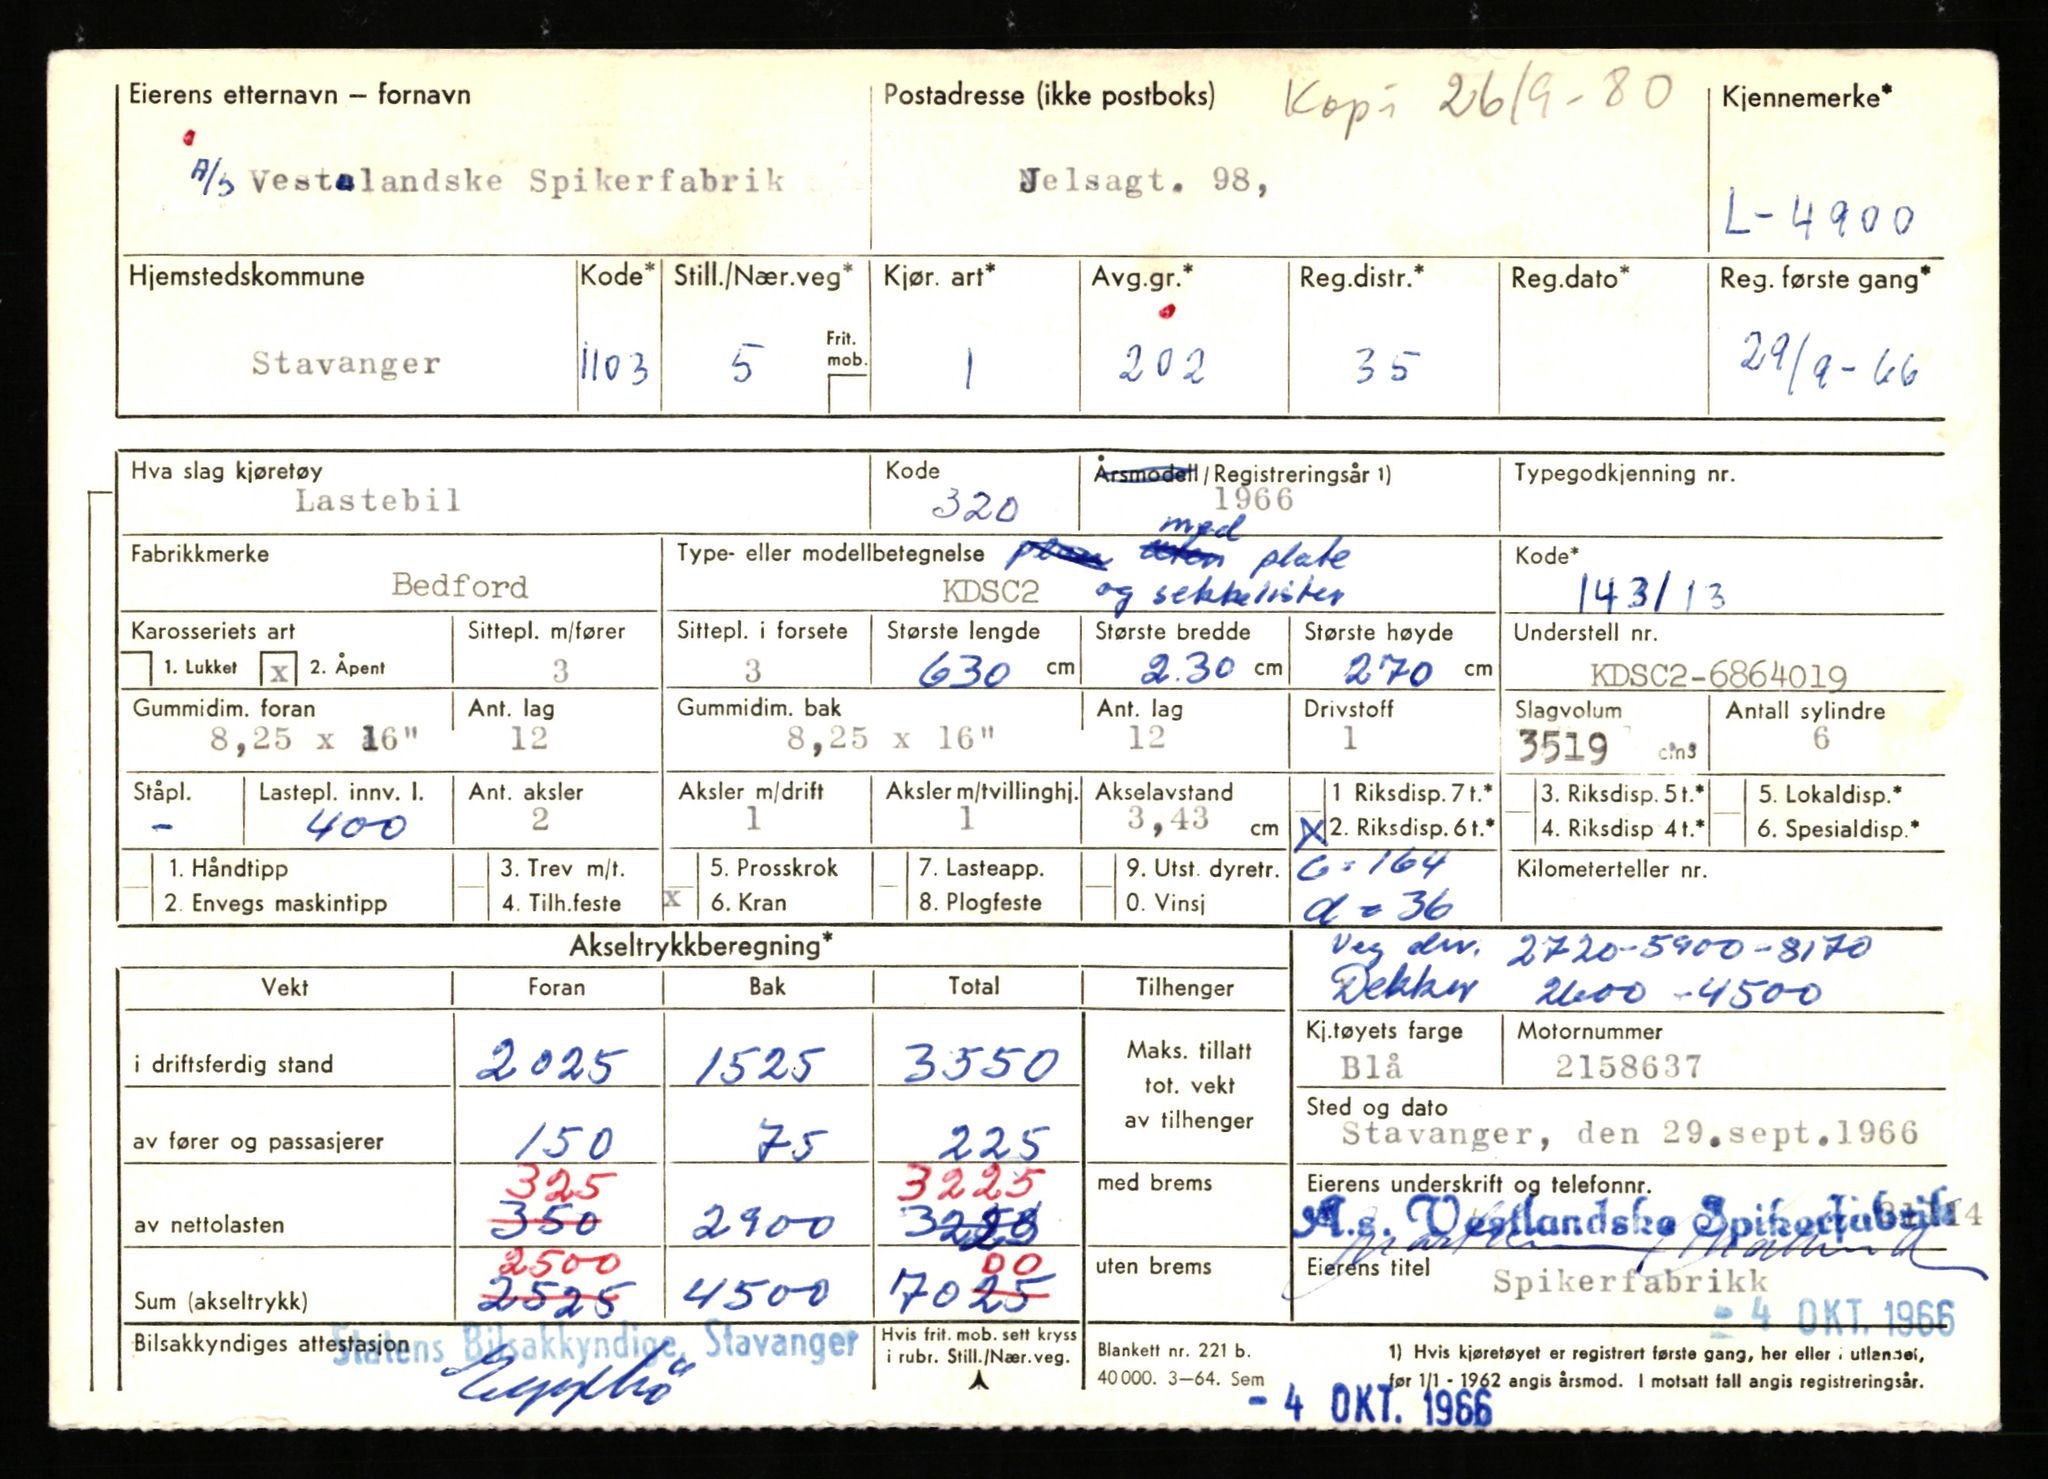 Eierens etternavn – fornavn
Postadresse (ikke postboks)
Kopi 26/9-80
Kjennemerke*
A/S Vestlandske Spikerfabrik
Jelsagt. 98,
L-4900
Hjemstedskommune
Kode*
Still./Nær.veg*
Kjør. art*
Avg.gr.*
Reg.distr.*
Reg.dato*
Reg. første gang*
Stavanger
1103
5
Frit. mob.
1
202
35
29/9-66
Hva slag kjøretøy
Kode
Årsmodell/Registreringsår 1)
Typegodkjenning nr.
Lastebil
320
1966
Fabrikkmerke
Type- eller modellbetegnelse
med
plate
Kode*
Bedford
KDSC2
og sekkelister
143/13
Karosseriets art
Sittepl. m/fører
Sittepl. i forsete
Største lengde
Største bredde
Største høyde
Understell nr.
1. Lukket
x 2. Åpent
3
3
630 cm
2.30 cm
270 cm
KDSC2-6864019
Gummidim. foran
Ant. lag
Gummidim. bak
Ant. lag
Drivstoff
Slagvolum
Antall sylindre
8,25 x 16"
12
8,25 x 16"
12
1
3519 cm3
6
Ståpl.
Lastepl. innv. l.
Ant. aksler
Aksler m/drift
Aksler m/tvillinghj.
Akselavstand
1 Riksdisp. 7 t.*
3. Riksdisp. 5 t.*
5. Lokaldisp.*
-
400
2
1
1
3,43 cm
X 2. Riksdisp. 6 t.*
4. Riksdisp 4 t.*
6. Spesialdisp.*
1. Håndtipp
3. Trev m/t.
5. Prosskrok
7. Lasteapp.
9. Utst. dyretr.
c = 164
Kilometerteller nr.
2. Envegs maskintipp
4. Tilh.feste
x
6. Kran
8. Plogfeste
0. Vinsj
d = 36
Akseltrykkberegning*
Veg dir. 2720-5900-8170
Dekker 2600-4500
Vekt
Foran
Bak
Total
Tilhenger
i driftsferdig stand
2025
1525
3550
Maks. tillatt
tot. vekt
av tilhenger
Kj.tøyets farge
Motornummer
Blå
2158637
av fører og passasjerer
150
75
225
Sted og dato
Stavanger, den 29.sept.1966
325
3225
av nettolasten
350
2900
med brems
Eierens underskrift og telefonnr.
A.s. Vestlandske Spikerfabrik
2500
00
Sum (akseltrykk)
2525
4500
7025
uten brems
Eierens titel
Spikerfabrikk
- 4 OKT. 1966
Bilsakkyndiges attestasjon
Statens Bilsakkyndige, Stavanger
Hvis frit. mob. sett kryss
i rubr. Still./Nær.veg.
Blankett nr. 221 b.
40 000. 3–64. Sem
1) Hvis kjøretøyet er registrert første gang, her eller i utlandet,
før 1/1 - 1962 angis årsmod. I motsatt fall angis registreringsår.
- 4 OKT. 1966